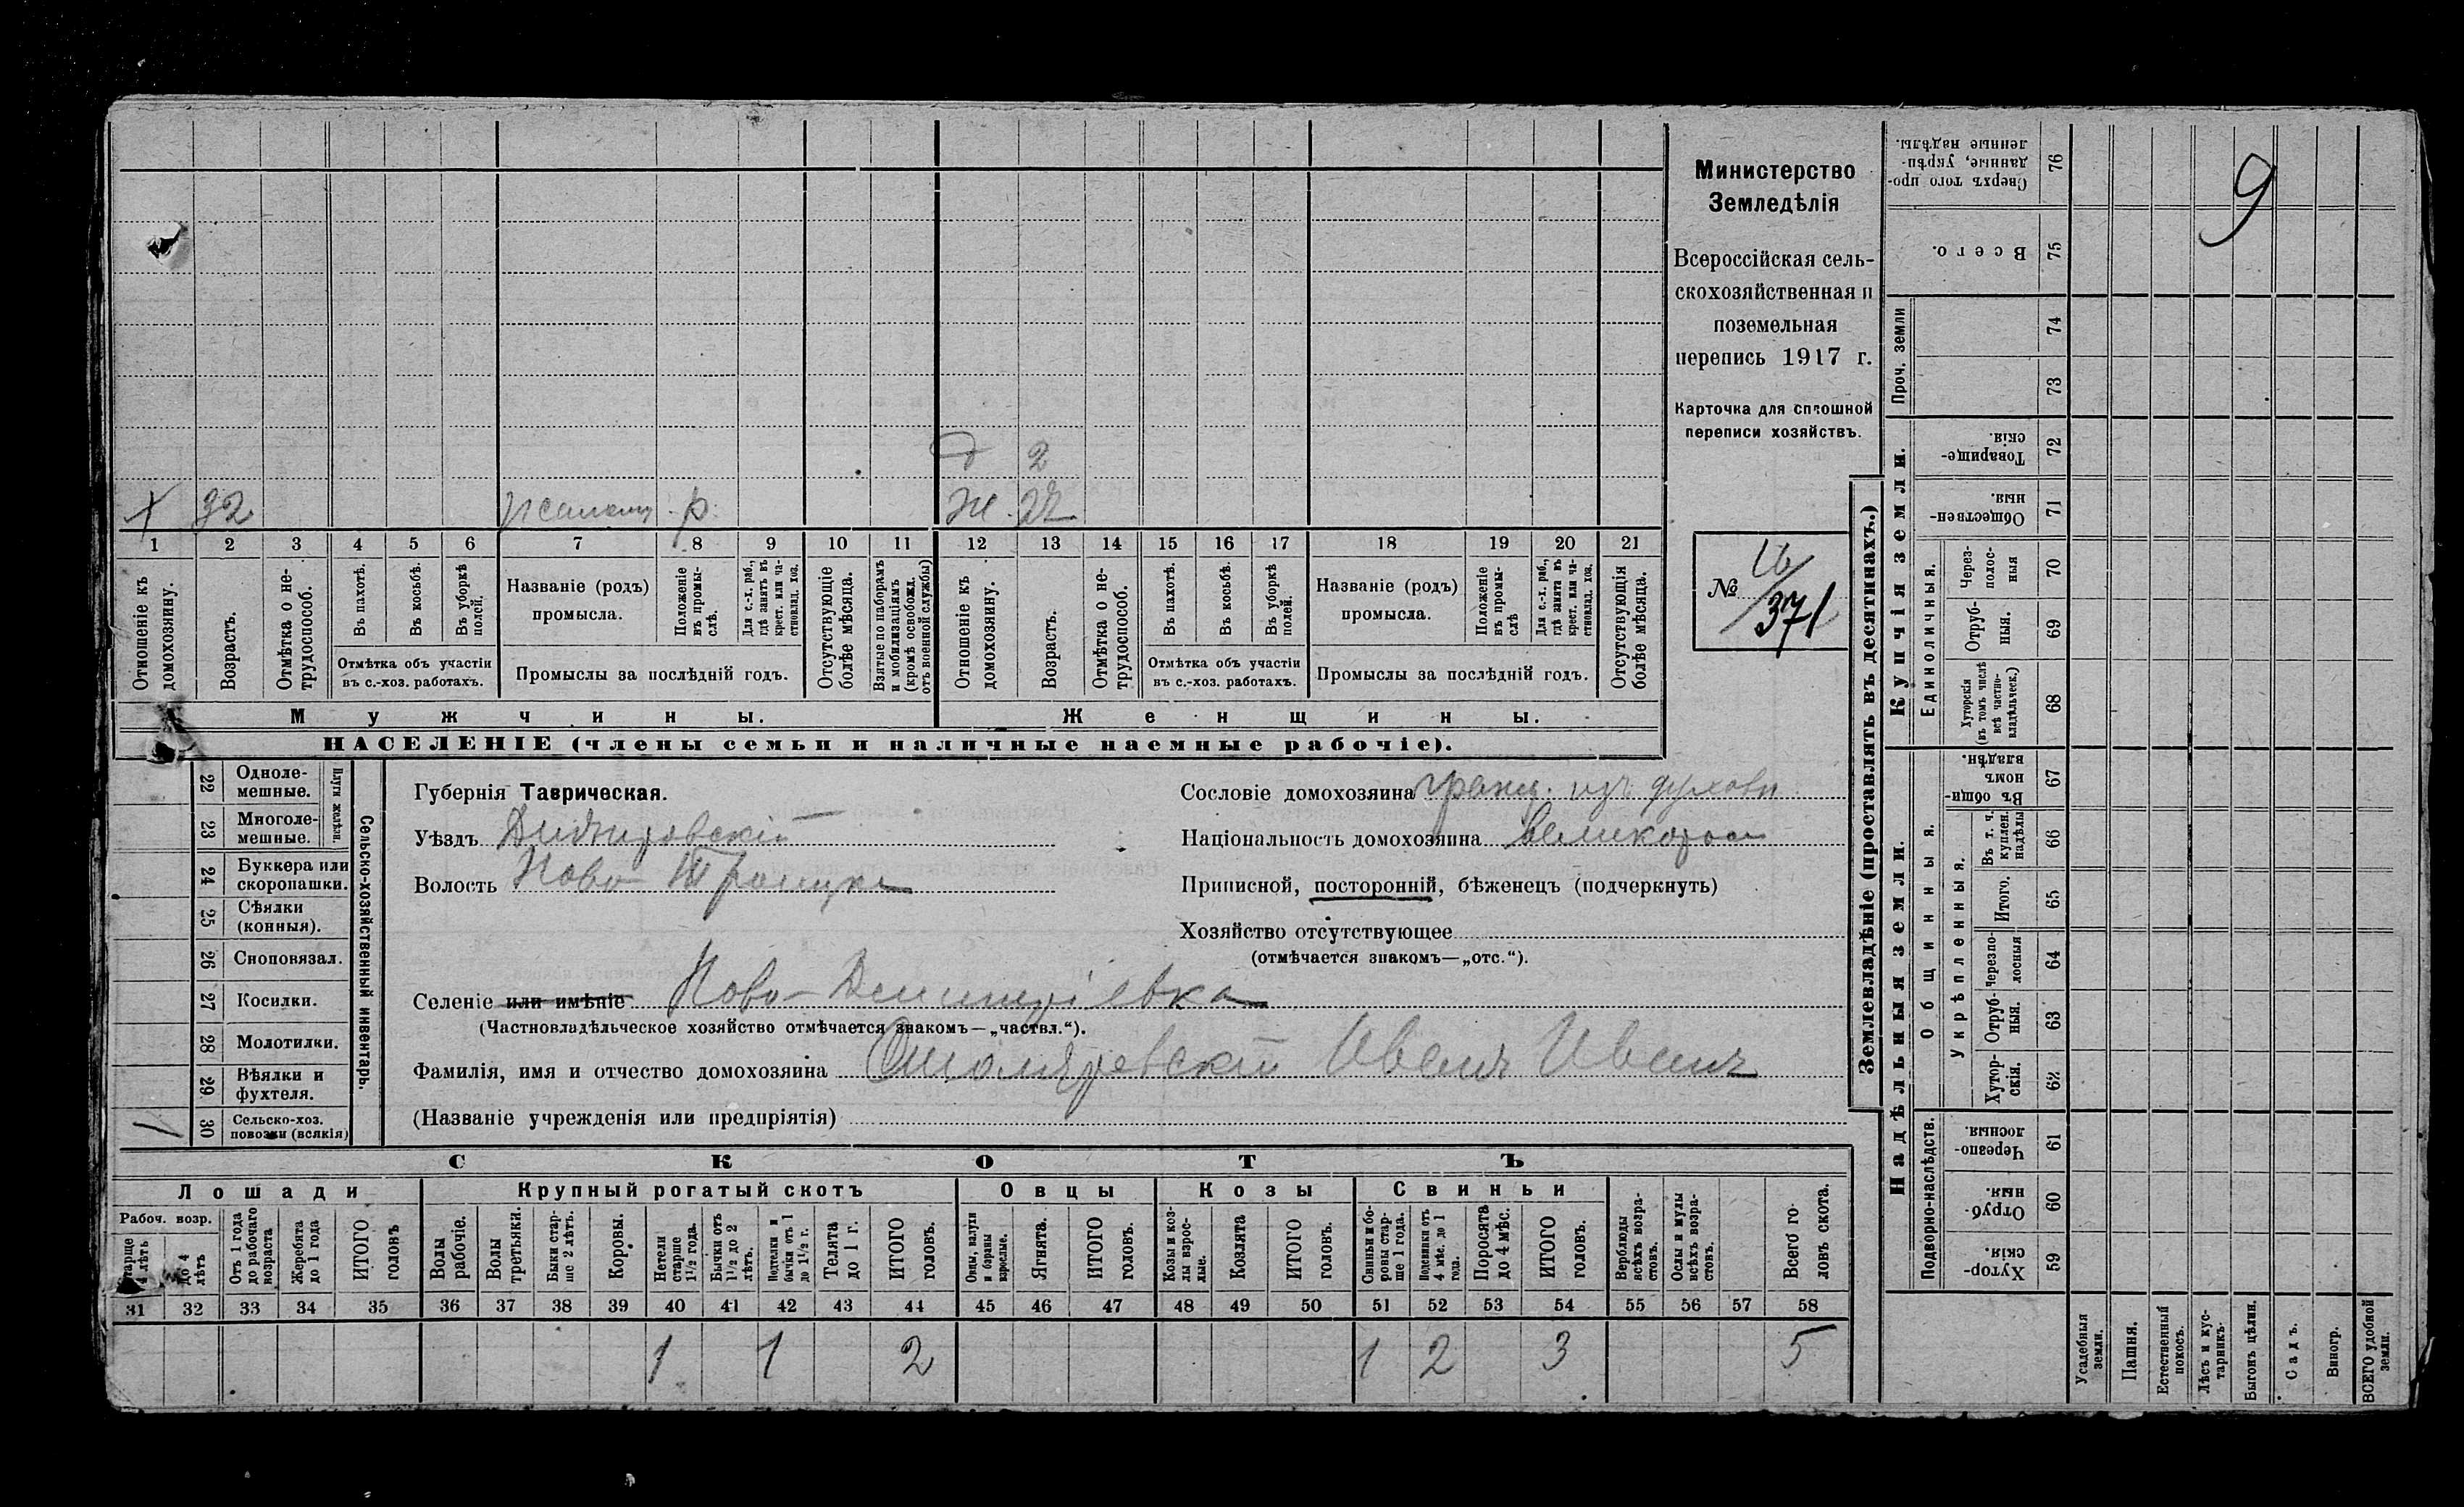 Министерство
Земледѣлія
Всероссійская сель-
скохозяйственная и
поземельная
перепись 1917 г.
Карточка для сплошной
переписи хозяйствъ.
№ 371
д 2
х 32 р. ж. 22
1 2 3 4 5 6 7 8 9 10 11 12 13 14 15 16 17 18 19 20 21
Отношеніе къ домохозяину.
Возрастъ.
Отмѣтка о не-трудоспособ.
Въ пахотѣ.
Въ косьбѣ.
Въ уборкѣ полей.
Отмѣтка объ участіи
въ с.-хоз. работахъ.
Названіе (родъ)
промысла.
Положеніе въ промы-слѣ.
Для с.-х. раб., гдѣ занятъ въ крест. или ча-стновлад. хоз.
Промыслы за послѣдній годъ.
Отсутствующіе болѣе мѣсяца.
Взятые по наборамъ и мобилизаціямъ (кромѣ освобожд. отъ военной службы)
Отношеніе къ домохозяину.
Возрастъ.
Отмѣтка о не-трудоспособ.
Въ пахотѣ.
Въ косьбѣ.
Въ уборкѣ полей.
Отмѣтка объ участіи
въ с.-хоз. работахъ.
Названіе (родъ)
промысла.
Положеніе въ промы-слѣ
Для с.-х. раб., гдѣ занятъ въ крест. или ча-стновлад. хоз.
Промыслы за послѣдній годъ.
Отсутствующія болѣе мѣсяца.
Мужчины. Женщины.
НАСЕЛЕНІЕ (члены семьи и наличные наемные рабочіе).
22 Одноле-мешные.
23 Многоле-мешные.
Плуги желѣзн.
24 Буккера или скоропашки.
25 Сѣялки (конныя).
26 Сноповязал.
27 Косилки.
28 Молотилки.
29 Вѣялки и фухтеля.
1 30 Сельско-хоз. повозки (всякія)
Сельско-хозяйственный инвентарь.
Губернія Таврическая.
Уѣздъ Днѣпровскій
Волость Ново-Троицка
Сословіе домохозяина гражд. изъ духовн
Національность домохозяина великоросс
Приписной, посторонній, бѣженецъ (подчеркнуть)
Хозяйство отсутствующее
(отмѣчается знакомъ—„отс.“).
Селеніе или имѣніе Ново-Дмитріевка
(Частновладѣльческое хозяйство отмѣчается знакомъ—„частвл.“).
Фамилія, имя и отчество домохозяина Иванъ Иванъ
(Названіе учрежденія или предпріятія)
СКОТЪ
Лошади Крупный рогатый скотъ Овцы Козы Свиньи
Рабоч. возр.
Старше 4 лѣтъ
до 4 лѣтъ
Отъ 1 года до рабочаго возраста
Жеребята до 1 года
ИТОГО головъ
Волы рабочіе.
Волы третьяки.
Быки стар-ше 2 лѣтъ.
Коровы.
Нетели старше 1½ года.
Бычки отъ 1½ до 2 лѣтъ.
Подтелки и бычки отъ 1 до 1½ г.
Телята до 1 г.
ИТОГО головъ.
Овцы, валухи и бараны взрослые.
Ягнята.
ИТОГО головъ.
Козы и коз-лы взрос-лые.
Козлята
ИТОГО головъ.
Свиньи и бо-ровы стар-ше 1 года.
Подсвинки отъ 4 мѣс. до 1 года.
Поросята до 4 мѣс.
ИТОГО головъ.
Верблюды всѣхъ возра-стовъ.
Ослы и мулы всѣхъ возра-стовъ.
Всего го-ловъ скота.
31 32 33 34 35 36 37 38 39 40 41 42 43 44 45 46 47 48 49 50 51 52 53 54 55 56 57 58
1 1 2 1 2 3 5
Землевладѣніе (проставлять въ десятинахъ.)
9
Сверхъ того про-данные, укрѣп-ленные надѣлы. 76
Всего. 75
Проч. земли 74
73
Купчія земли.
Товарище-скія. 72
Обществен-ныя. 71
Единоличныя.
Через-полос-ныя 70
Отруб-ныя. 69
Хуторскія (въ томъ числѣ всѣ частно-владѣльческ.) 68
Надѣльныя земли.
Общинныя.
Въ общи-номъ владѣн. 67
Укрѣпленныя.
Въ т. ч. куплен. надѣлы 66
Итого. 65
Черезпо-лосныя 64
Отруб-ныя. 63
Хутор-скія. 62
Подворно-наслѣдств.
Черезпо-лосныя. 61
Отруб-ныя. 60
Хутор-скія. 59
Усадебныя земли.
Пашня.
Естественный покосъ.
Лѣсъ и кус-тарникъ.
Выгонъ цѣлин.
Садъ.
Виногр.
ВСЕГО удобной земли.